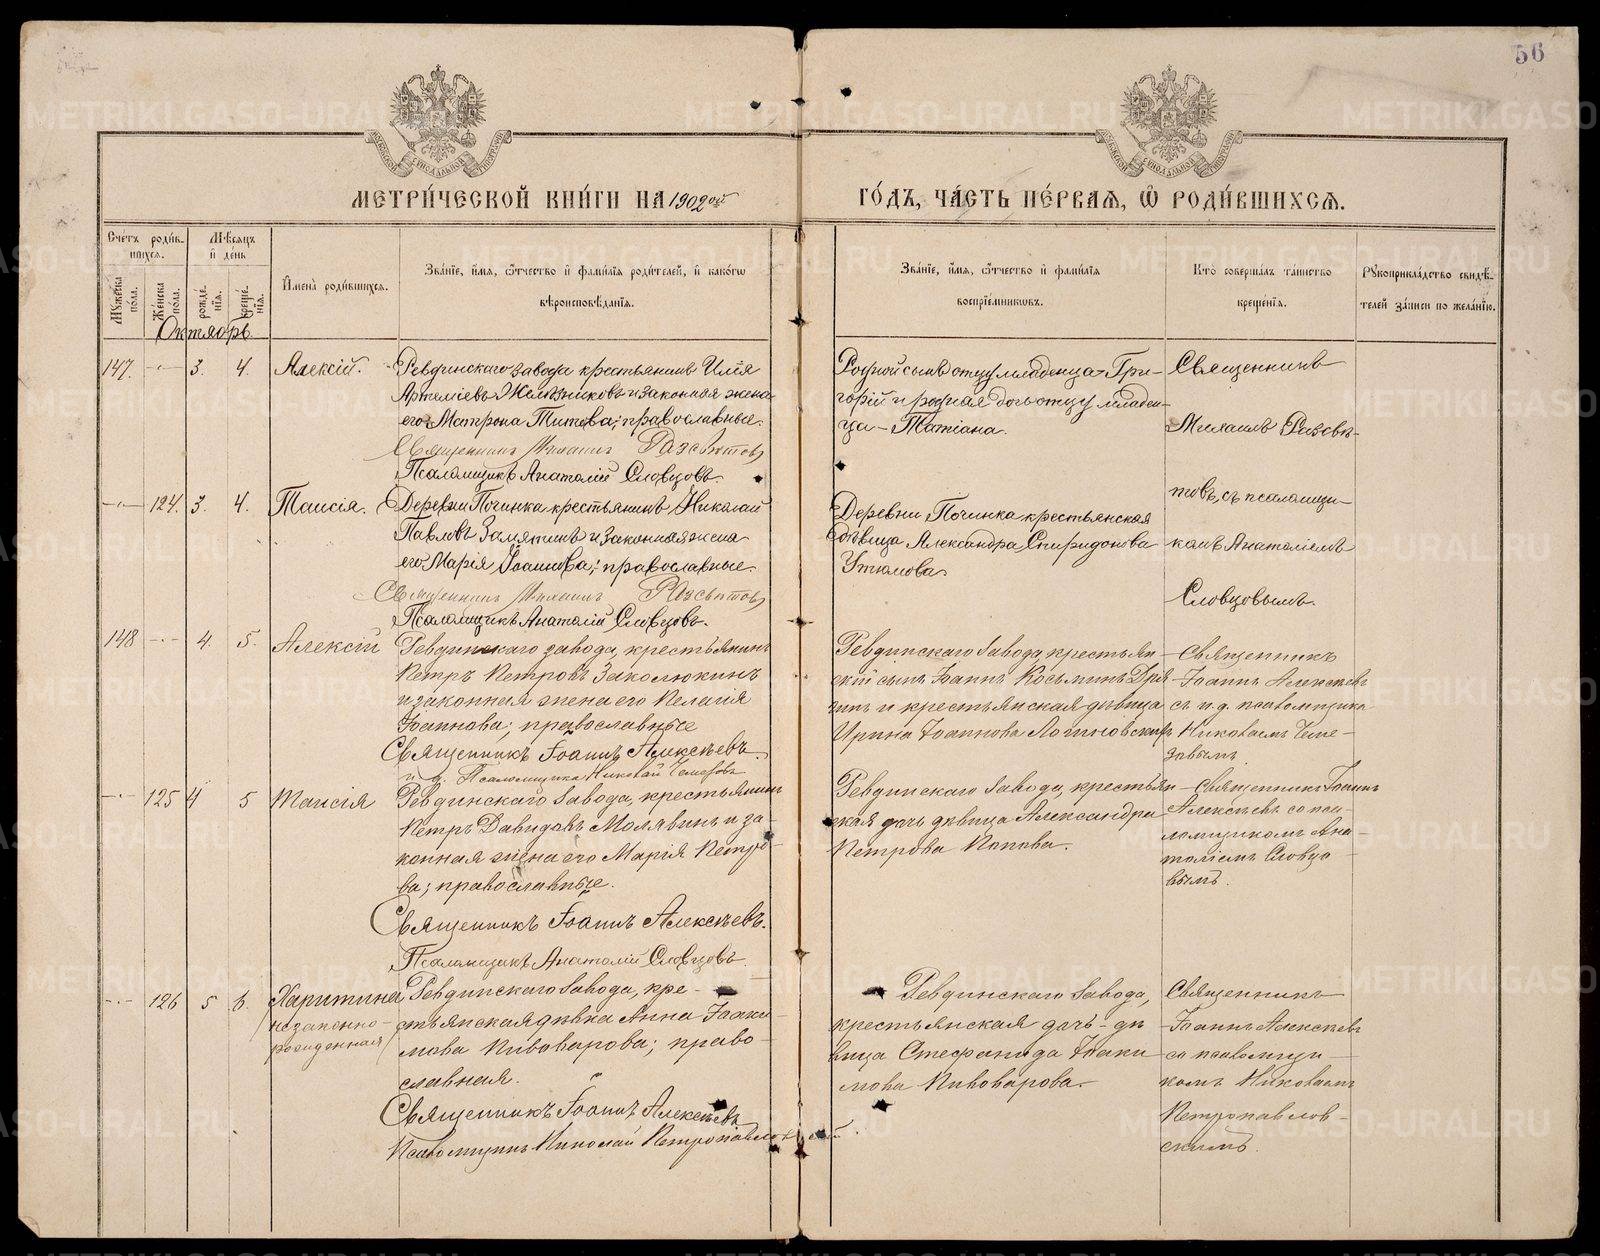 56
МЕТРИ́ЧЕСКОЙ КНИ́ГИ НА 1902ой ГО́ДЪ, ЧА́СТЬ ПЕ́РВАЯ, Ѡ҆ РОДИ́ВШИХСЯ.
Сче́тъ роди́в-
шихся.
Му́жеска пола.
Же́нска пола.
Мѣ́сяцъ
и҆ де́нь
рожде́-
нїя.
креще́-
нїя.
И҆мена̀ роди́вшихся.
Зва́нїе, и҆́мя, ѻ҆́тчество и҆ фами́лїя роди́телей, и҆ како́гѡ
вѣроисповѣ́данїя.
Зва́нїе, и҆́мя, ѻ҆́тчество и҆ фами́лїя
воспрїе́мниковъ.
Кто̀ соверша́лъ та́инство
креще́нїя.
Рꙋкоприкла́дство свидѣ́-
телей за́писи по жела́нїю.
Октябрь
147. -·- 3. 4. Алексій.
Ревдинскаго завода крестьянинъ Илія
Артеміевъ Желѣзниковъ и законная жена
его Матрона Титова; православные.
Священникъ Михаилъ Разсвѣтовъ
Псаломщикъ Анатолій Словцовъ.
Родной сынъ отцу младенца Гри-
горій и родная дочь отцу младен-
ца - Татіана.
Священникъ
Михаилъ Разсвѣ-
товъ, съ псаломщи-
комъ Анатоліемъ
Словцовымъ.
-·- 124. 3. 4. Таисія.
Деревни Починка крестьянинъ Николай
Павловъ Замятинъ и законная жена
его Марія Іоаннова; православные.
Священникъ Михаилъ Разсвѣтовъ
Псаломщикъ Анатолій Словцовъ.
Деревни Починка крестьянская
дѣвица Александра Спиридонова
Утюмова.
148 -·- 4. 5. Алексій
Ревдинскаго завода, крестьянинъ
Петръ Петровъ Заколюкинъ
и законная жена его Пелагія
Іоаннова; православные
Священникъ Іоаннъ Алексѣевъ.
и. д. Псаломщика Николай Чемезовъ
Ревдинскаго завода, крестьян-
скій сынъ Іоаннъ Косьминъ Дря-
гинъ и крестьянская дѣвица
Ирина Іоаннова Логиновскихъ
Священникъ
Іоаннъ Алексѣевъ
съ и. д. псаломщика
Николаемъ Чеме-
зовымъ
-·- 125 4 5 Таисія
Ревдинскаго завода, крестьянинъ
Петръ Давидовъ Молявинъ и за-
конная жена его Марія Петро-
ва; православные.
Священникъ Іоаннъ Алексѣевъ.
Псаломщикъ Анатолій Словцовъ.
Ревдинскаго завода, крестьян-
ская дочь дѣвица Александра
Петрова Попова.
Священникъ Іоаннъ
Алексѣевъ со пса-
ломщикомъ Ана-
толіемъ Словцо-
вымъ.
-·- 126 5 6. Харитина
незаконно-
рожденная
Ревдинскаго завода, кре-
стьянская дѣвка Анна Іоаки-
мова Пивоварова; право-
славная.
Священникъ Іоаннъ Алексѣевъ
Псаломщикъ Николай Петропавловскій
Ревдинскаго завода,
крестьянская дочь - дѣ-
вица Стефанида Іоаки-
мова Пивоварова.
Священникъ
Іоаннъ Алексѣевъ
со псаломщи-
комъ Николаемъ
Петропавлов-
скимъ.